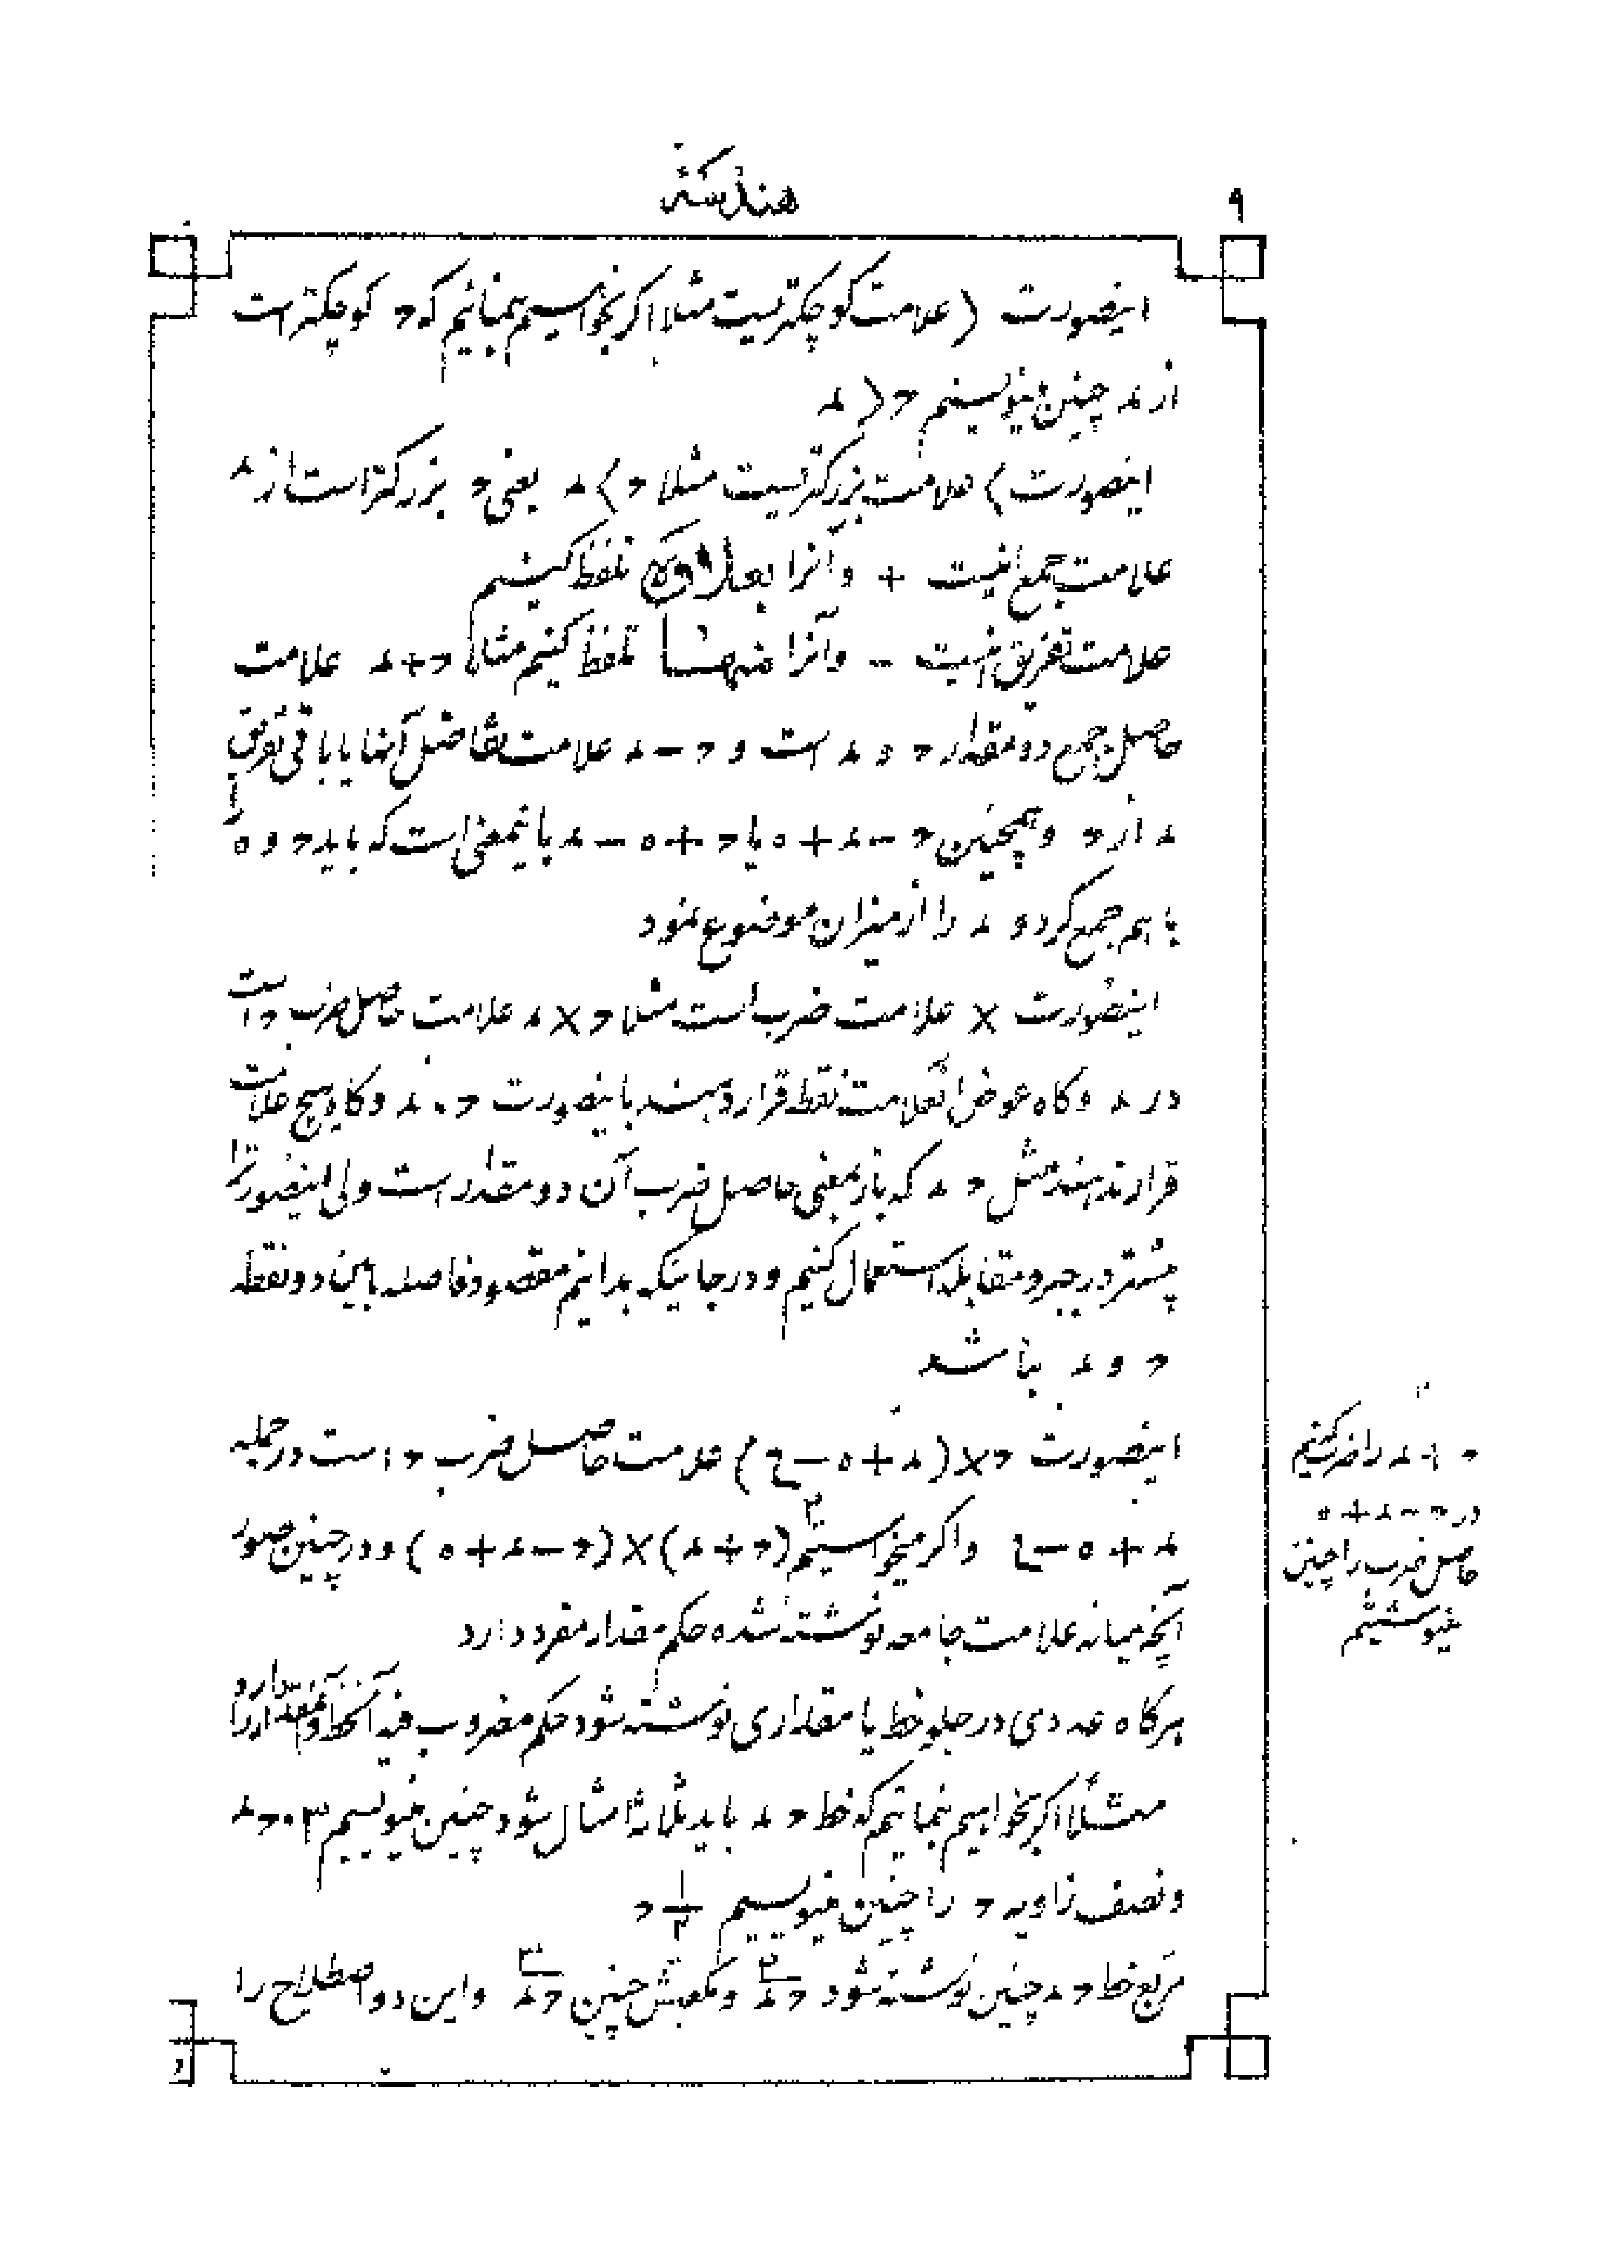 ۹
هندسه
اینصورت ( علامت کوچکتریست مثلا اکر بخواهیم بنمائیم که د کوچکتر است
از م چنین مینویسیم د ( م
اینصورت ) علامت بزرکتریست مثلا د ) م یعنی د بزرکتر است از م
علامت جمع اینست + و آنرا بعلاوه تلفظ کنیم
علامت تفریق اینست - و آنرا منها تلفظ کنیم مثلا د + م علامت
حاصل جمع دو مقدار د و م است و د - م علامت تفاضل آنها یا باقی تفریق
م از د و همچنین د - م + ه یا د + ه - م باینمعنی است که باید د و ه را
با هم جمع کرد و م را از میزان موضوع نمود
اینصورت × علامت ضرب است مثلا د × م علامت حاصل ضرب د است
در م و کاه عوض این علامت نقطه قرار دهند باینصورت د . م و کاه هیچ علامت
قرار ندهند مثل د م که باز بمعنی حاصل ضرب آن دو مقدار است ولی اینصورترا
بیشتر در جبر و مقابله استعمال کنیم و در جائیکه بدانیم مقصود فاصله مابین دو نقطه
د و م نباشد
اینصورت د × ( م + ه - ع ) علامت حاصل ضرب د است در جمله
م + ه - ع و اکر میخواستیم ۲ ( د + م ) × ( د - م + ه ) و در چنین صور
آنچه میانه علامت جامعه نوشته شده حکم مقدار مفرد دارد
هرکاه عددی در جلو خط یا مقداری نوشته شود حکم مضروب فیه آنخط و آنمقدار را دارد
مثلا اکر بخواهیم بنمائیم که خط د م باید ثلاثة امثال شود چنین مینویسیم ۳ . د م
و نصف زاویه د را چنین مینویسیم ۱/۲ د
مربع خط د م چنین نوشته شود د م ۲ و مکعبش چنین د م ۳ و این دو اصطلاح را
۲
د + م را ضرب کنیم
در د - م + ه
حاصل ضرب را چنین
مینوشتیم